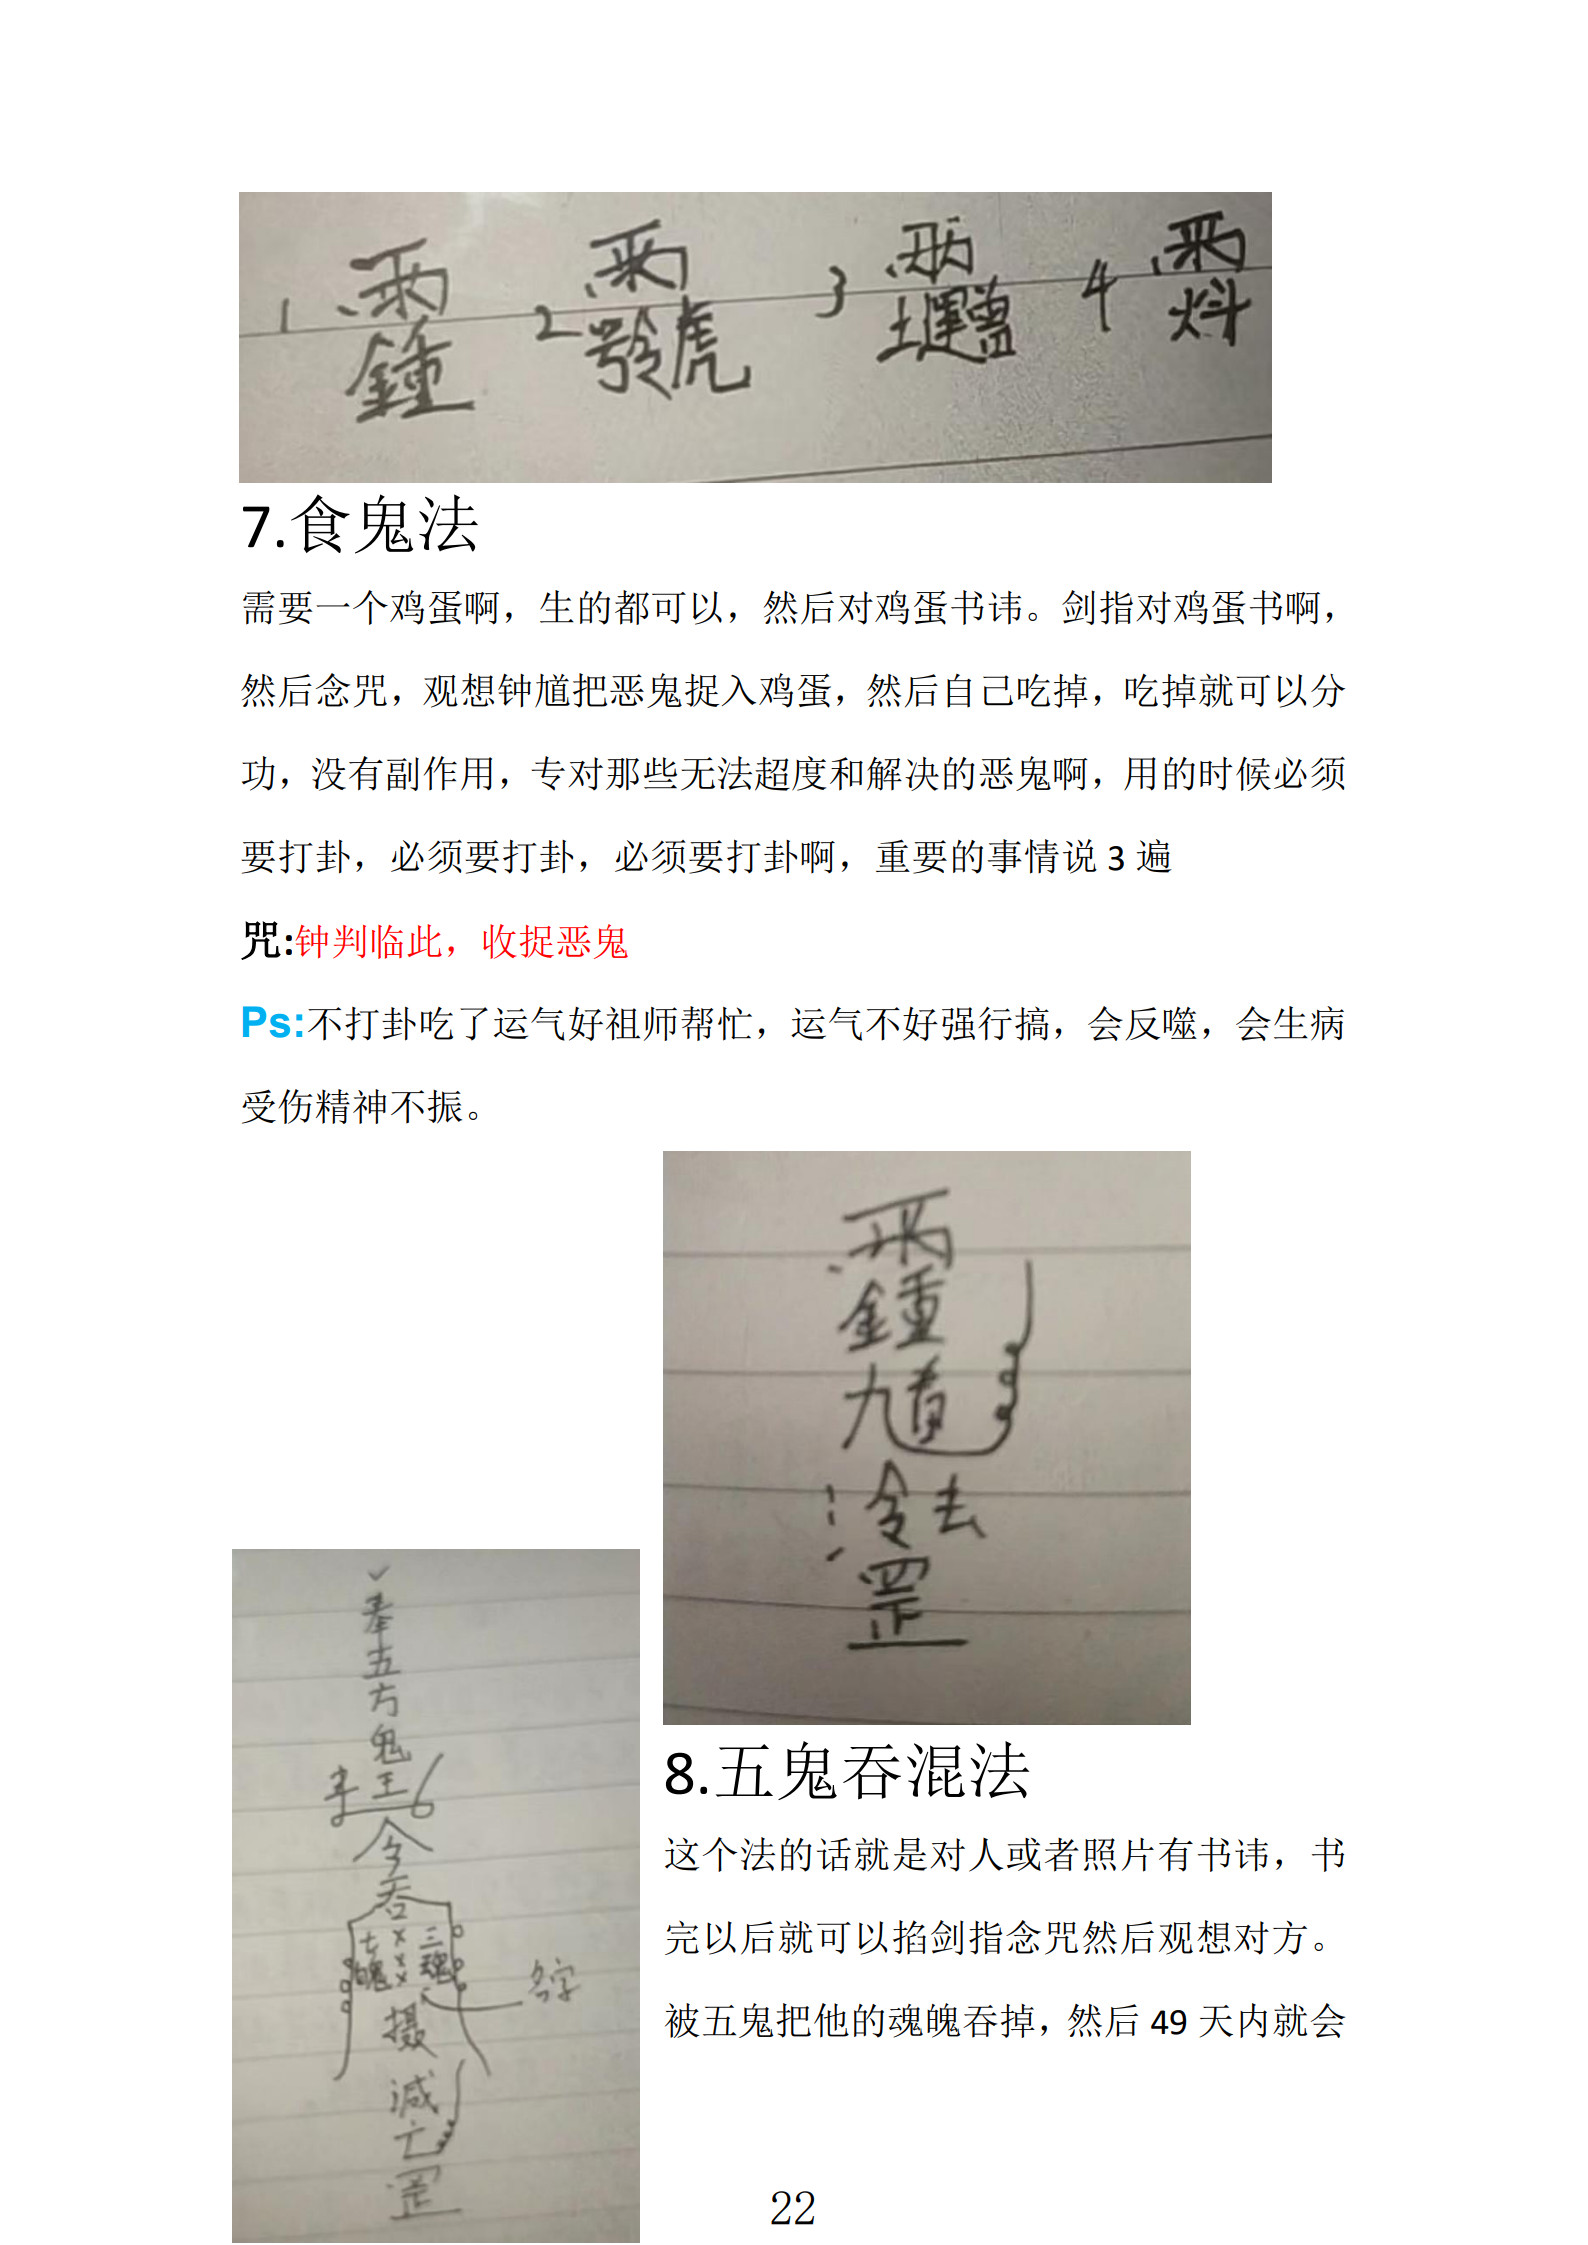 1 2 3 4
7.食鬼法
需要一个鸡蛋啊，生的都可以，然后对鸡蛋书讳。剑指对鸡蛋书啊，
然后念咒，观想钟馗把恶鬼捉入鸡蛋，然后自己吃掉，吃掉就可以分
功，没有副作用，专对那些无法超度和解决的恶鬼啊，用的时候必须
要打卦，必须要打卦，必须要打卦啊，重要的事情说 3 遍
咒:钟判临此，收捉恶鬼
Ps:不打卦吃了运气好祖师帮忙，运气不好强行搞，会反噬，会生病
受伤精神不振。
罡
奉
五
方
鬼
王
令
吞
七魄 三魂
名字
摄
减
亡
罡
8.五鬼吞混法
这个法的话就是对人或者照片有书讳，书
完以后就可以掐剑指念咒然后观想对方。
被五鬼把他的魂魄吞掉，然后 49 天内就会
22